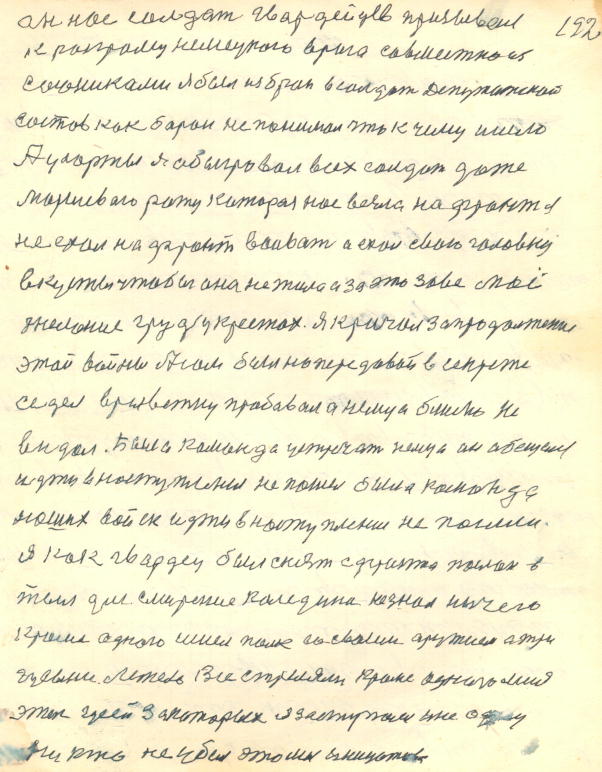 192
он нас солдат гвардейцев призывал
к розгрому немецкого врага совместно с
союзниками я был избран в солдат депутатской
состов как баран не понимал что к чему имело
А у гарты я обыгровал всех солдат даже
маршевого роту которая нас везла на фронт я
не ехал на фронт воеват а ехал свою головку
в кусты чтобы она не за это
желание грудь у крестах. Я кричал за продолжение
этой войны А сам был на передовой в секрете
седел в розветку пробавал а немца близко не
видал. Была команда устречат немца он обещался
идти в наступления не пошел была команда
нашых войск идти в наступление не пошли.
Я как гвардеец был снят с фронта послан в
тыл для смирение каледина не знал ничего
кроме одного имел полк со своим оружием а три
Все стреляли кроме одного меня
этих за которых я заступался не одну
Ни кто не убел этому